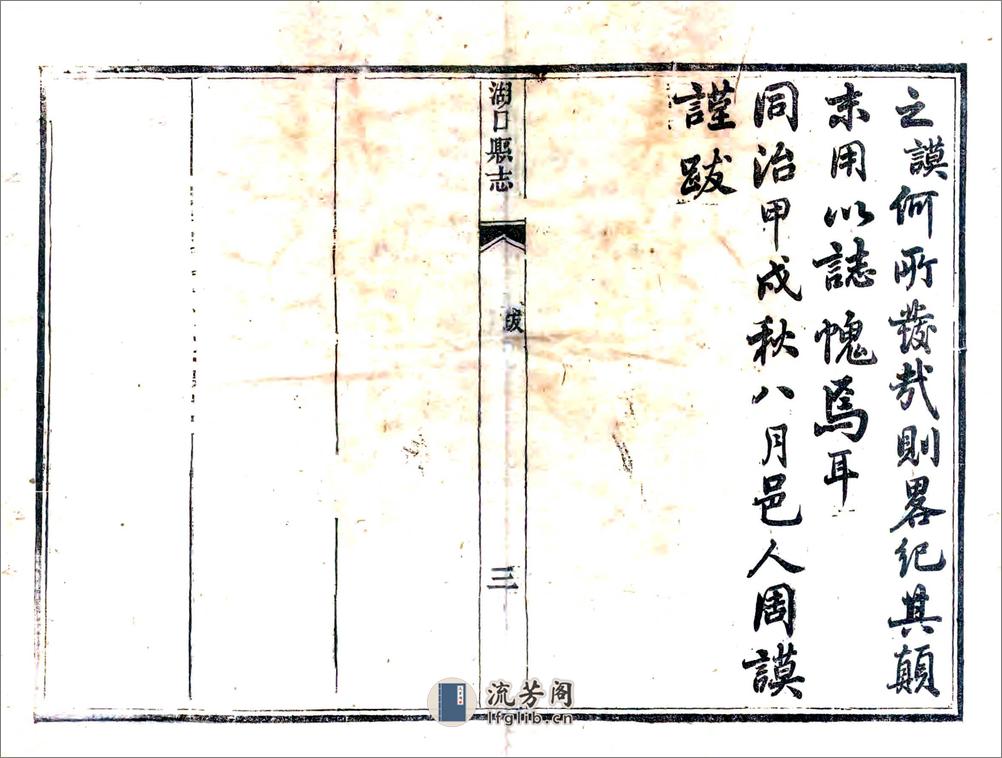 之謨何所發哉則畧紀其顛
末用以誌愧焉耳
同治甲戌秋八月邑人周謨
謹跋
湖口縣志
跋
三
流芳阁
lfglib.cn